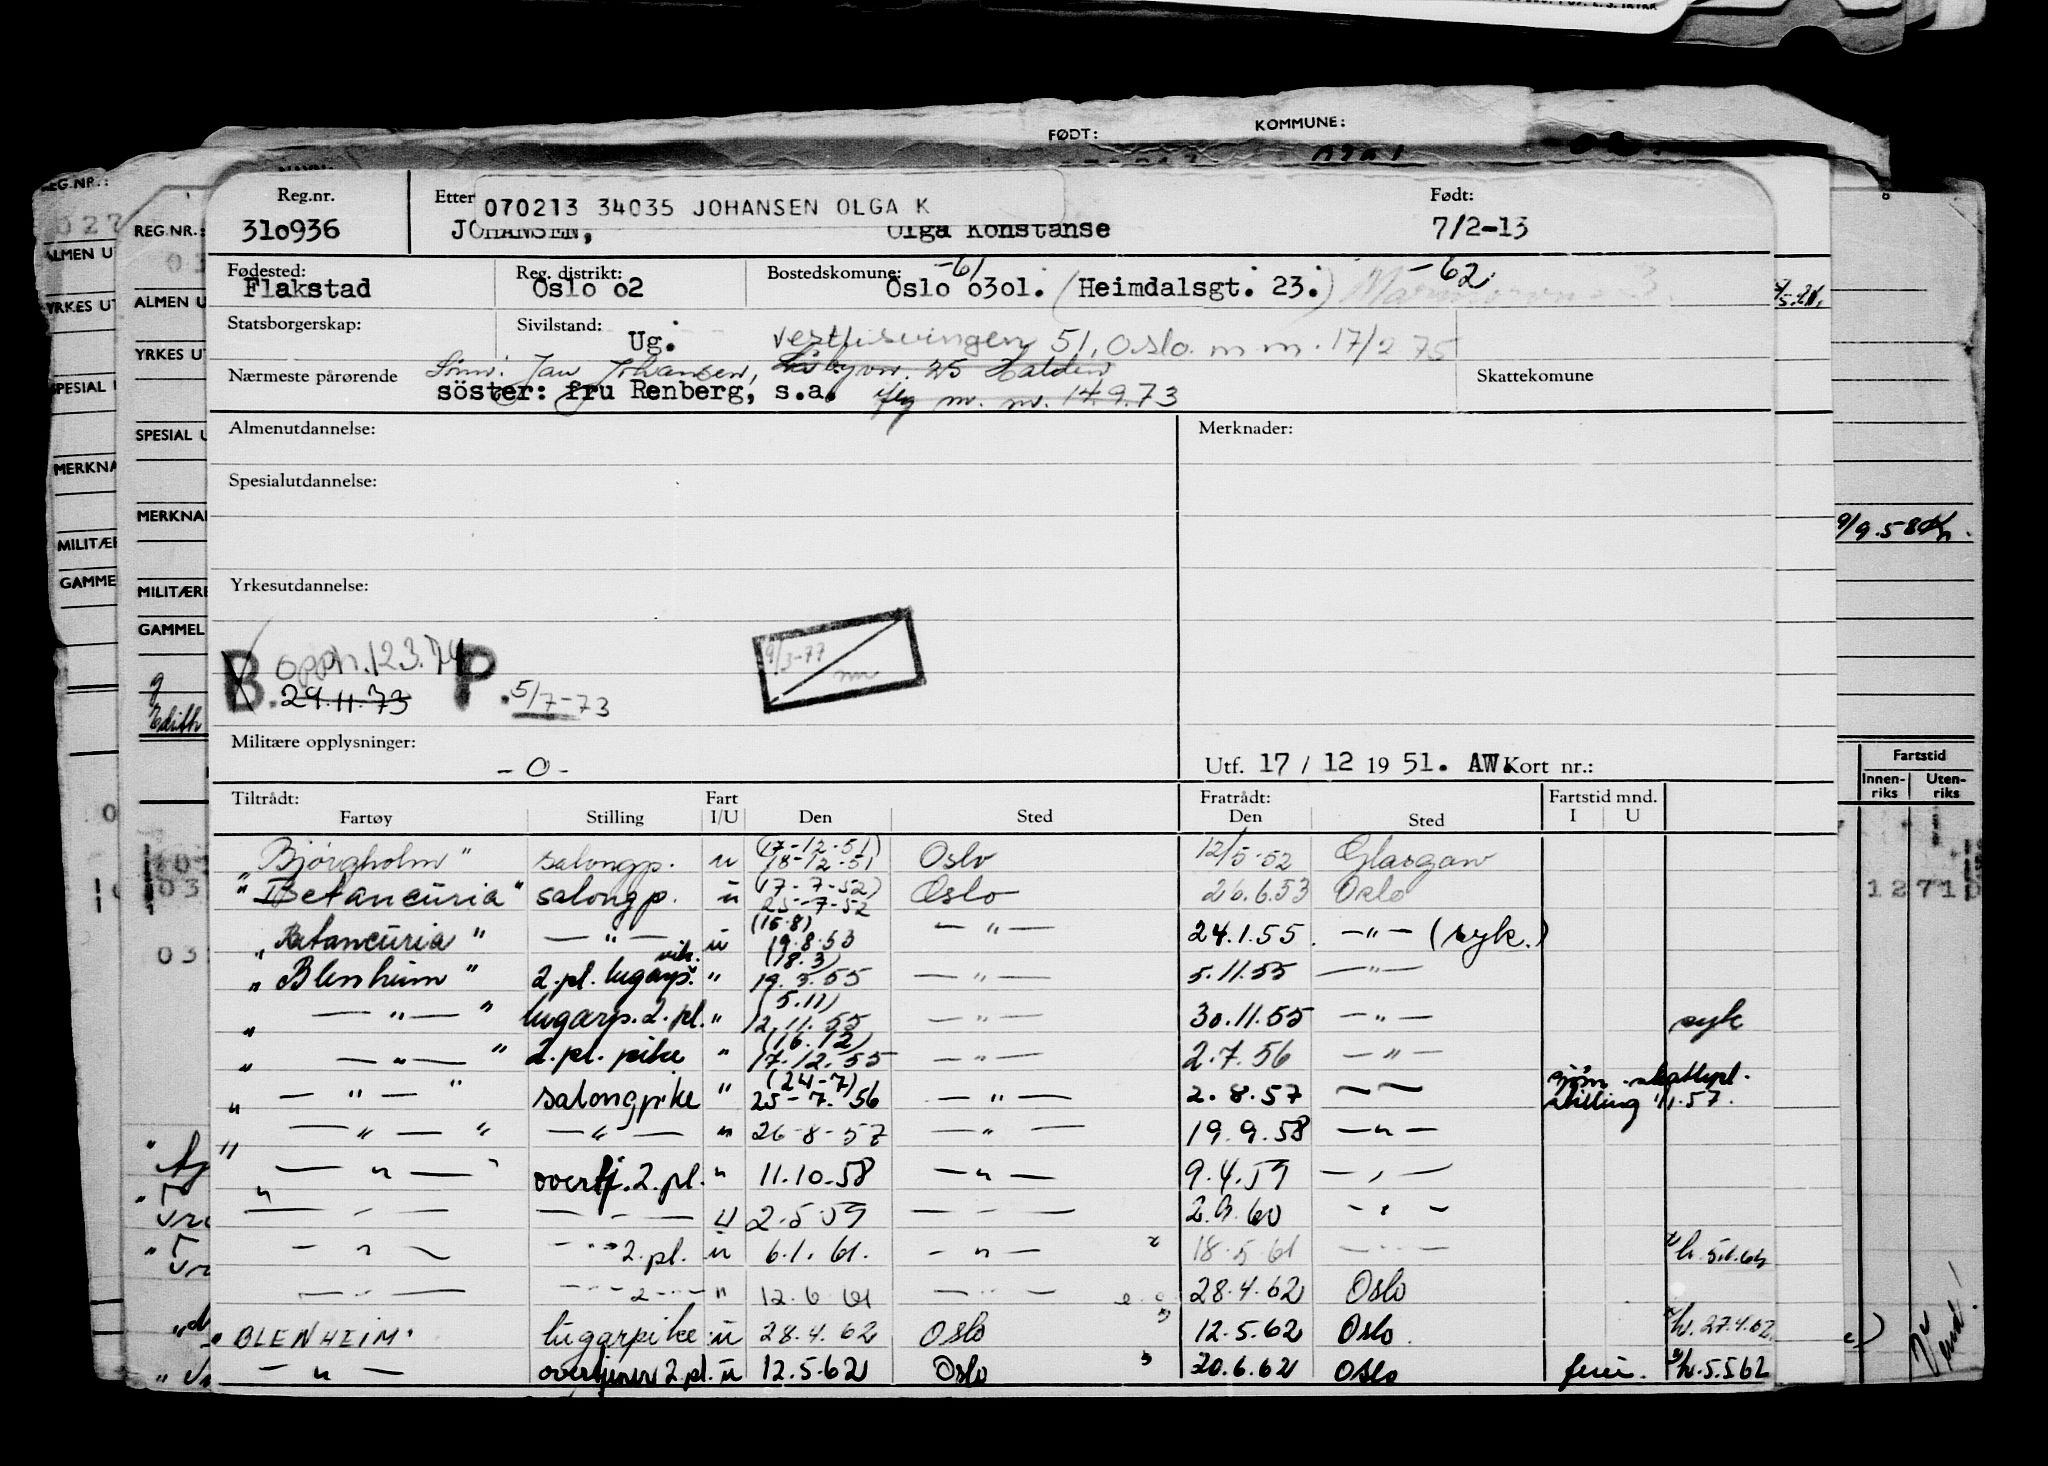 FØDT: KOMMUNE:
EG.NR.:
REG.NR.:
ALMEN U
YRKES UT
SPESIAL U
MERKNA
MILITÆRE
GAMMEL
Edith
Reg.nr. Etter Født:
070213 34035 JOHANSEN OLGA K
310936 JOHANSEN, Olga Konstanse 7/2-13
Fødested: Reg. distrikt: Bostedskomune: -61 -62
Flakstad Oslo o2 Oslo o3o1. (Heimdalsgt. 23.)
Statsborgerskap: Sivilstand: Ug. Vestlisvingen 51, Oslo. m m. 17/2 75
Sønn: Jan Johansen, 25 Halden
Nærmeste pårørende Skattekomune
söster: fru Renberg, s.a. flg m. m. 14.9.73
Almenutdannelse: Merknader:
Spesialutdannelse:
Yrkesutdannelse:
B. opph. 12 3.74 P. 5/7-73
29.11.73
9/3-77
Militære opplysninger: -0-
Utf. 17 / 12 19 51. AW. Kort nr.:
Tiltrådt: Fart Fratrådt: Fartstid mnd.
Fartøy Stilling I/U Den Sted Den Sted I U
"Bjørgholm" salongp. u (17-12-51) 18-12-51 Oslo 12/5-52 Glasgow
"Betancuria" salongp. u (17-7-52) 25-7-52 Oslo 26.6.53 Oslo
"Betancuria" — " — u (15.8) 19.8.53 — " — 24.1.55. — " — (syk.)
"Blenheim" 2.pl. lugarp. vik. " (18.3) 19.3.55 — " — 5.11.55 — " —
" — " — " lugarp. 2.pl. " (5.11) 12.11.55 — " — 30.11.55 — " — syk
" — " — " 2.pl. pike " (16.12) 17.12.55 — " — 2.7.56 — " —
" — " — " salongpike " (24-7) 25-7.56 — " — 2.8.57 — " — sjøm. skattepl. stilling 1/1.57.
" — " — " — " — " 26-8-57 — " — 19.9.58 — " —
" — " — " overtj. 2.pl. " 11.10.58 — " — 9.4.59 — " —
— " — — " — u 2.5.59 — " — 2.9.60 — " —
— " — — " — 2.pl. u 6.1.61. — " — 18.5.61 — " —
— " — — " — 2 — " — " 12.6.61 — " — 28.4.62 Oslo
"BLENHEIM" lugarpike u 28.4.62 Oslo 12.5.62 Oslo. h. 27.4.62
— " — overtjener 2.pl. u 12.5.62 Oslo 20.6.62 Oslo ferie. h. 5.5.62
9/9.58
Fartstid
Innen-riks Uten-riks
1271